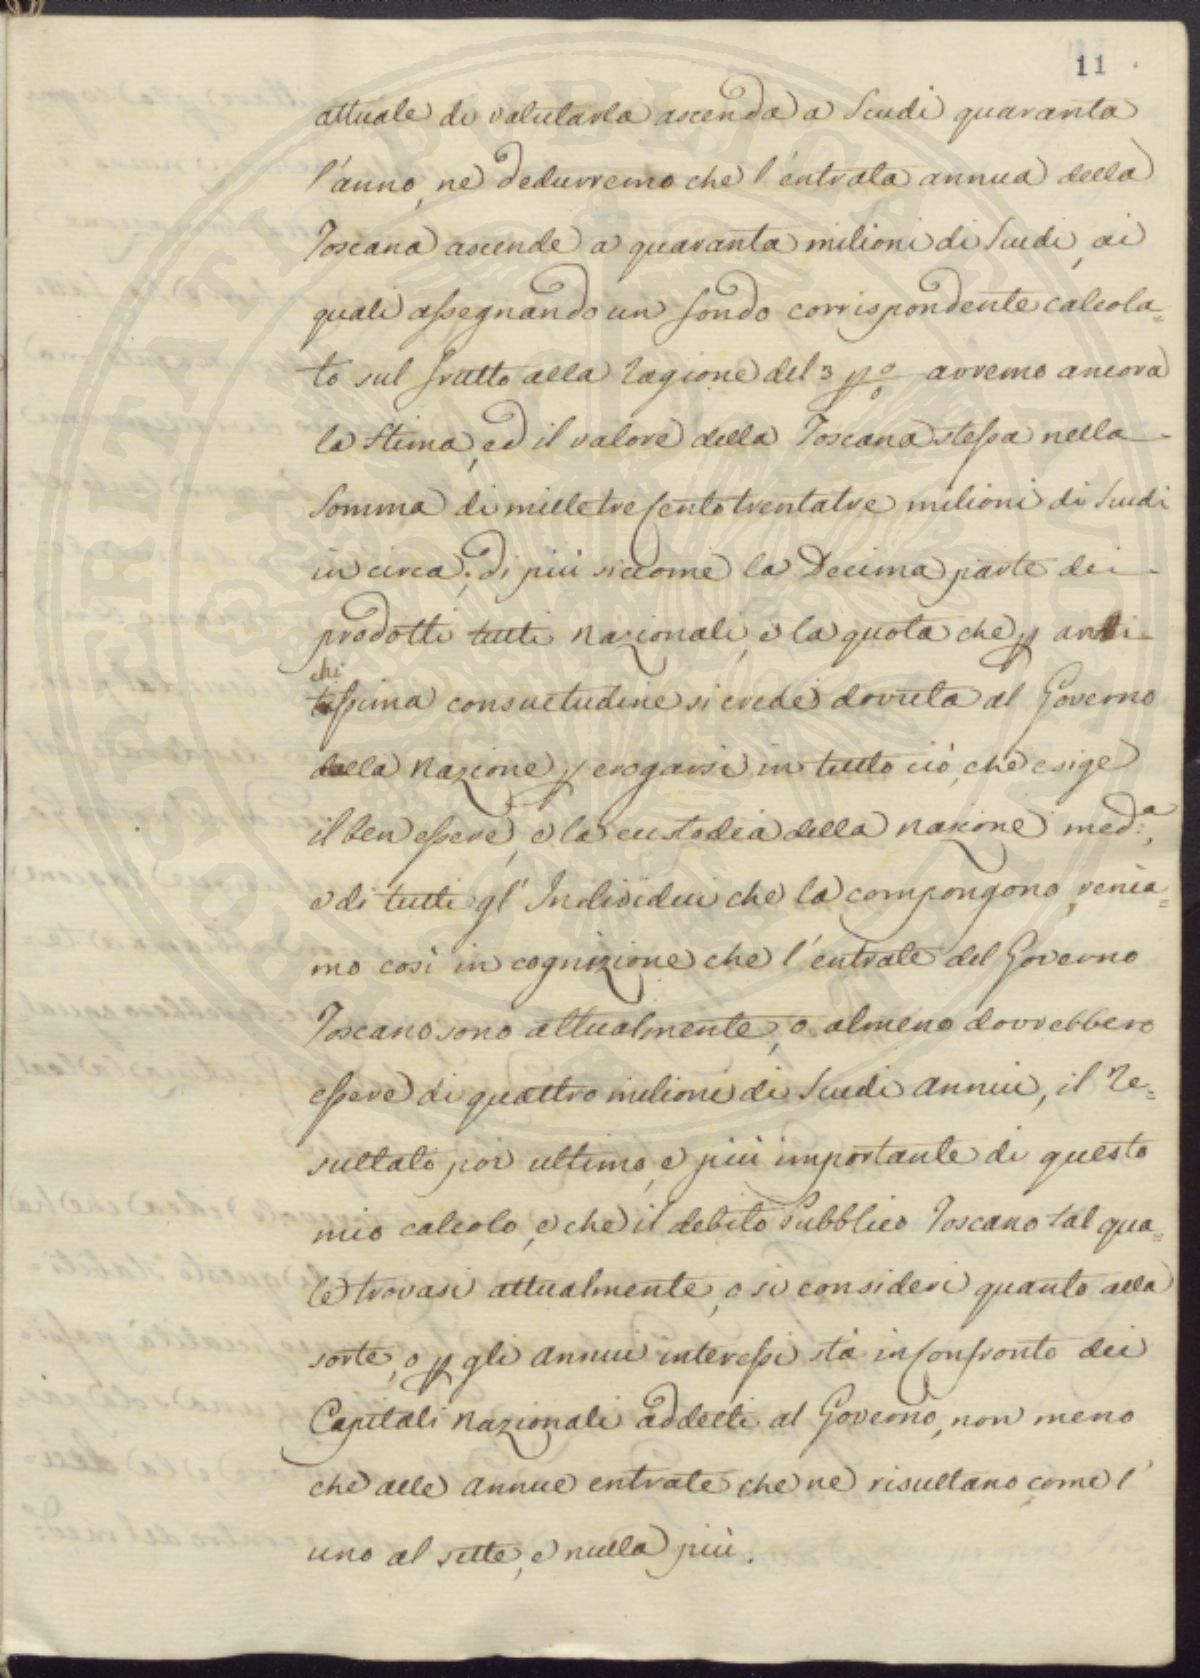 11
attuale di valutarla ascenda a Scudi quaranta
l'anno, ne dedurremo che l'entrata annua della
Toscana ascende a quaranta milioni di Scudi, ai
quali assegnando un fondo corrispondente calcola=
to sul frutto alla ragione del 3 p %o avremo ancora
la Stima, ed il valore della Toscana stessa nella
Somma di mille trecento trentatre milioni di Scudi
in circa; di più siccome la Decima parte dei
prodotti tutti nazionali, è la quota che p anti
chi
tissima consuetudine si crede dovuta al Governo
della Nazione p erogarsi in tutto ciò, che esige
il ben essere, e la custodia della nazione med:a,
e di tutti gl'Individui che la compongono, venia=
mo così in cognizione che l'entrate del Governo
Toscano sono attualmente, o almeno dovrebbero
essere di quattro milioni di Scudi annui, il Re=
sultato poi ultimo, e più importante di questo
mio calcolo, è che il debito Pubblico Toscano tal qua=
le trovasi attualmente, o si consideri quanto alla
sorte, o p gli annui interessi stà in confronto dei
Capitali nazionali addetti al Governo, non meno
che alle annue entrate che ne risultano, come l'
uno al sette, e nulla più.